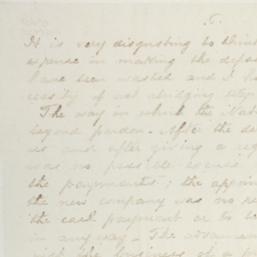 5.
It is very disgusting to think
expense in making the depos
have been wasted and I h
cessity of not abridging
The way in which the Nat
beyond pardon. After the de
us and after giving a reg
was no possible excuse
the payments; the appoin
the new company was no re
the cash payment or to
in any way. The advance